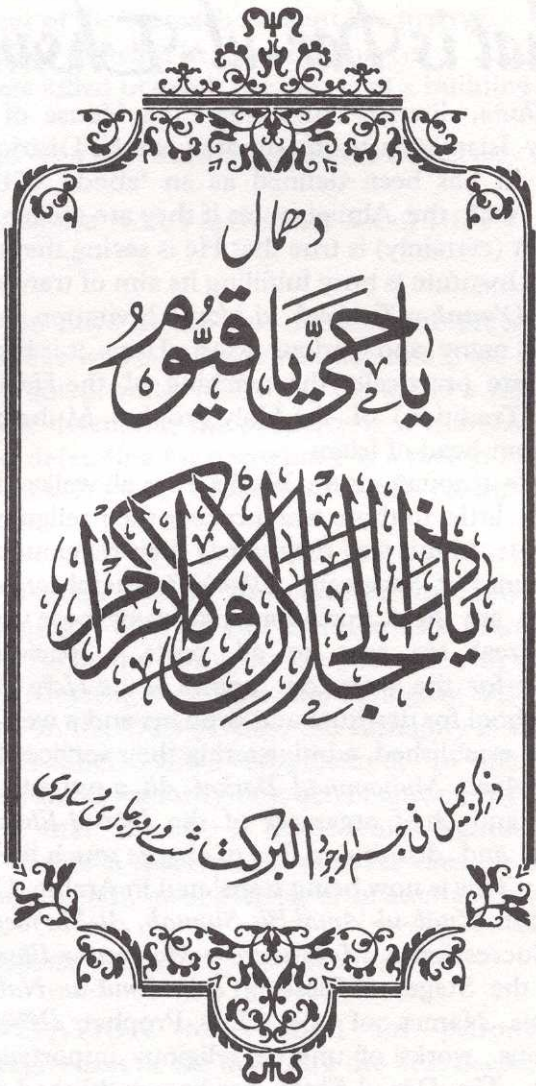 یا حَیُّ یا قَیُّوْمُ
یا ذا الجلال والاکرام
ذکر جمیل فی جسم الوجود البرکت جاری ساری